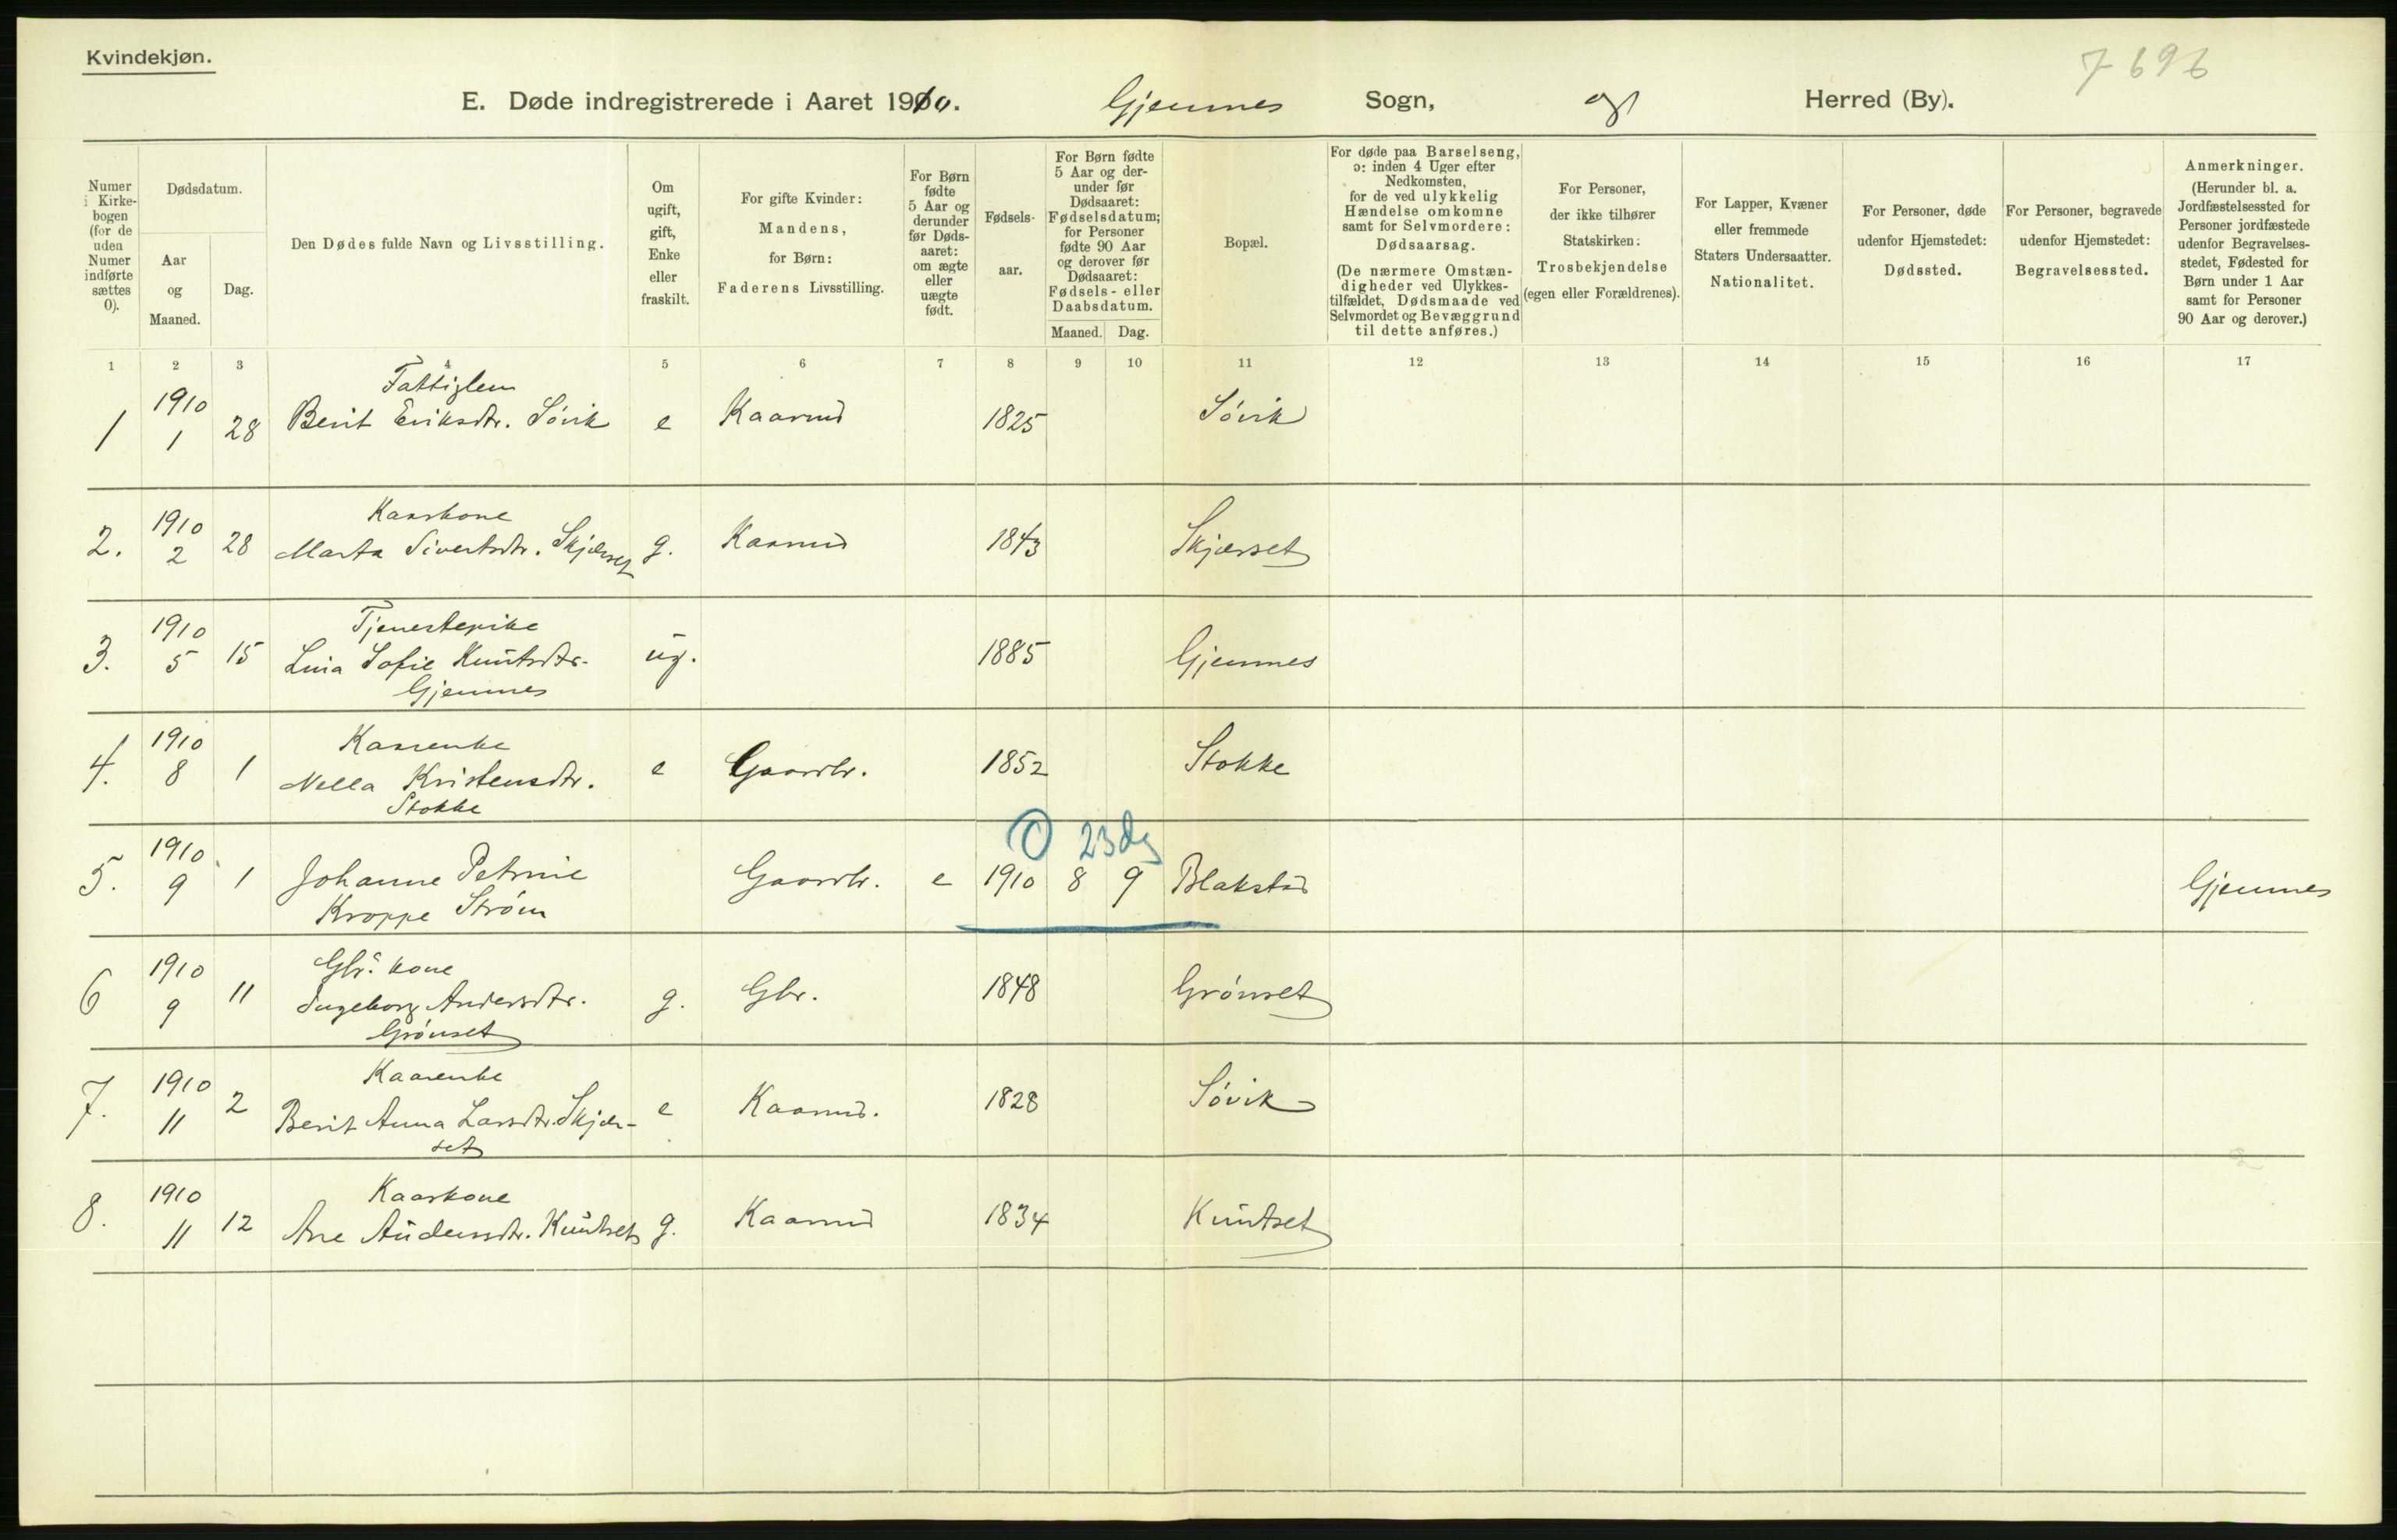 Kvindekjøn.
7696
E. Døde indregistrerede i Aaret 1910. Gjemnes Sogn, og Herred (By).
Numer i Kirkebogen (for de uden Numer indførte sættes 0).
Dødsdatum.
Aar og Maaned.
Dag.
Den Dødes fulde Navn og Livsstilling.
Om ugift, gift, Enke eller fraskilt.
For gifte Kvinder: Mandens, for Børn: Faderens Livsstilling.
For Børn fødte 5 Aar og derunder før Dødsaaret: om ægte eller uægte født.
Fødselsaar.
For Børn fødte 5 Aar og derunder før Dødsaaret: Fødselsdatum; for Personer fødte 90 Aar og derover før Dødsaaret: Fødsels- eller Daabsdatum.
Maaned. Dag.
Bopæl.
For døde paa Barselseng, ɔ: inden 4 Uger efter Nedkomsten, for de ved ulykkelig Hændelse omkomne samt for Selvmordere: Dødsaarsag. (De nærmere Omstændigheder ved Ulykkestilfældet, Dødsmaade ved Selvmordet og Bevæggrund til dette anføres.)
For Personer, der ikke tilhører Statskirken: Trosbekjendelse (egen eller Forældrenes).
For Lapper, Kvæner eller fremmede Staters Undersaatter. Nationalitet.
For Personer, døde udenfor Hjemstedet: Dødssted.
For Personer, begravede udenfor Hjemstedet: Begravelsessted.
Anmerkninger. (Herunder bl. a. Jordfæstelsessted for Personer jordfæstede udenfor Begravelsesstedet, Fødested for Børn under 1 Aar samt for Personer 90 Aar og derover.)
1 2 3 4 5 6 7 8 9 10 11 12 13 14 15 16 17
Fattiglem
1 1910 1 28 Berit Eriksdtr. Søvik e Kaarmd 1825 Søvik
Kaarkone
2. 1910 2 28 Marta Sivertsdtr. Skjærset g. Kaarmd 1843 Skjærset
Tjenestepike
3. 1910 5 15 Lina Sofie Knutsdtr. ug. 1885 Gjemnes
Gjemnes
Kaarenke
4. 1910 8 1 Nella Kristensdtr. e Gaardbr. 1852 Stokke
Stokke
0 23 dg
5. 1910 9 1 Johanne Petrine Gaardbr. e 1910 8 9 Blakstad Gjemnes
Kroppe Strøm
Gbr.s kone
6 1910 9 11 Ingeborg Andersdtr. g. Gbr. 1848 Grønset
Grønset
Kaarenke
7. 1910 11 2 Berit Anna Larsdtr. Skjær- e Kaarmd. 1828 Søvik
set
Kaarkone
8. 1910 11 12 Ane Andersdtr. Knutset g. Kaarmd 1834 Knutset